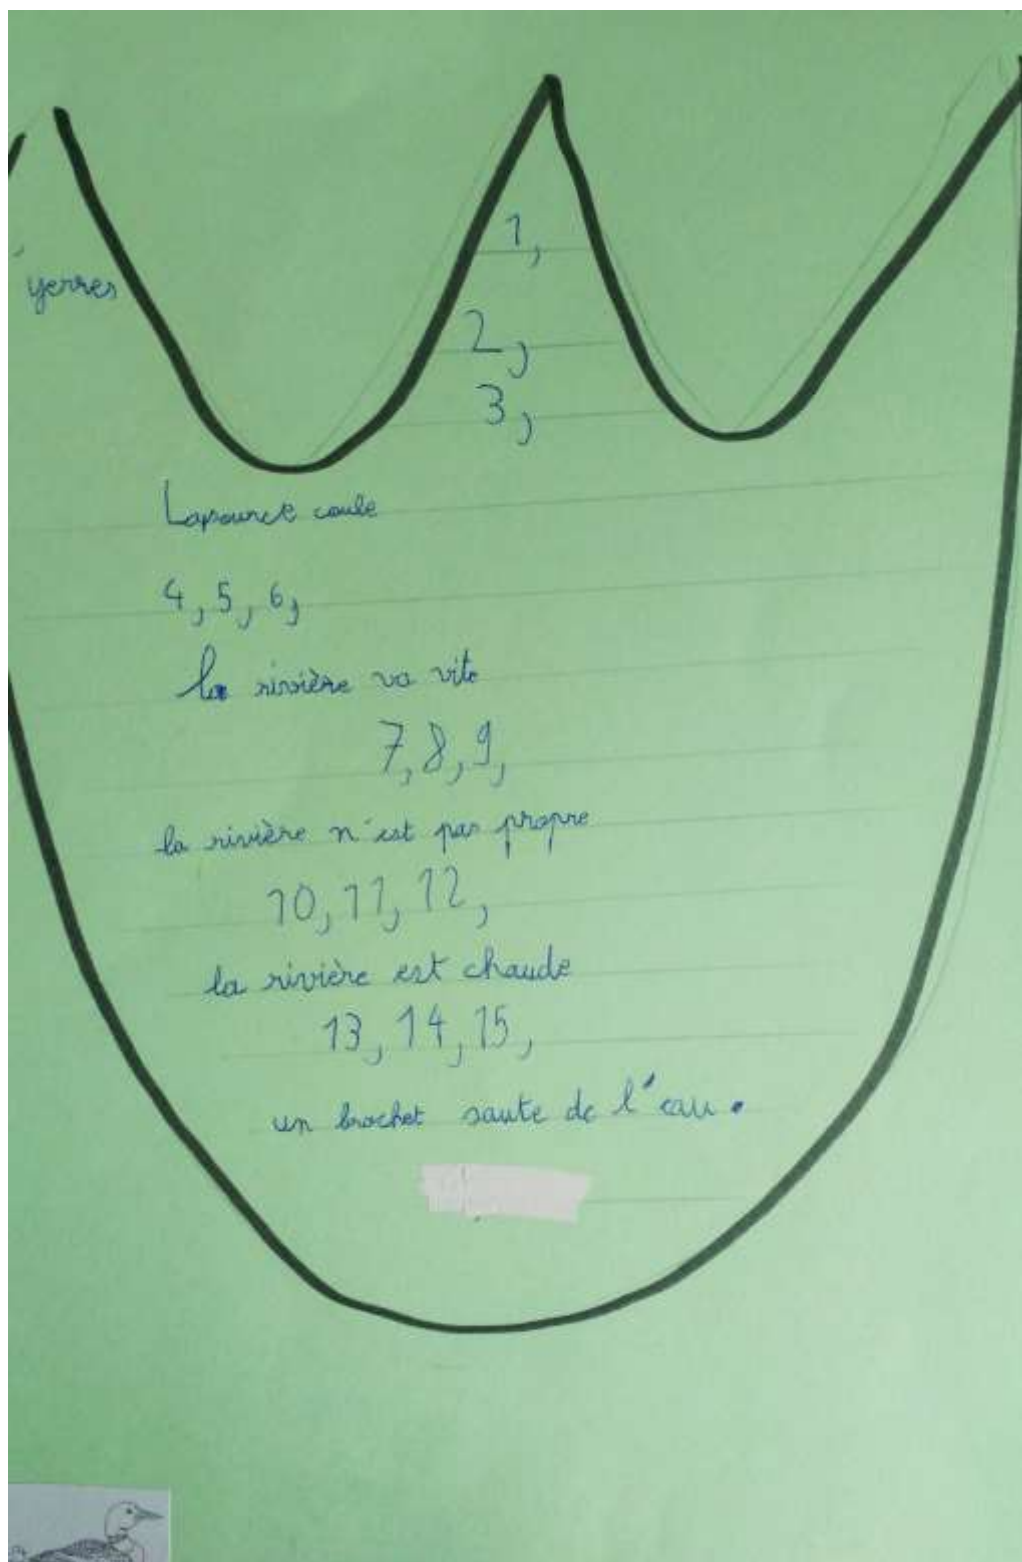 yerres
1,
2,
3,
La source coule
4, 5, 6,
la rivière va vite
7, 8, 9,
la rivière n'est pas propre
10, 11, 12,
la rivière est chaude
13, 14, 15,
un brochet saute de l'eau.